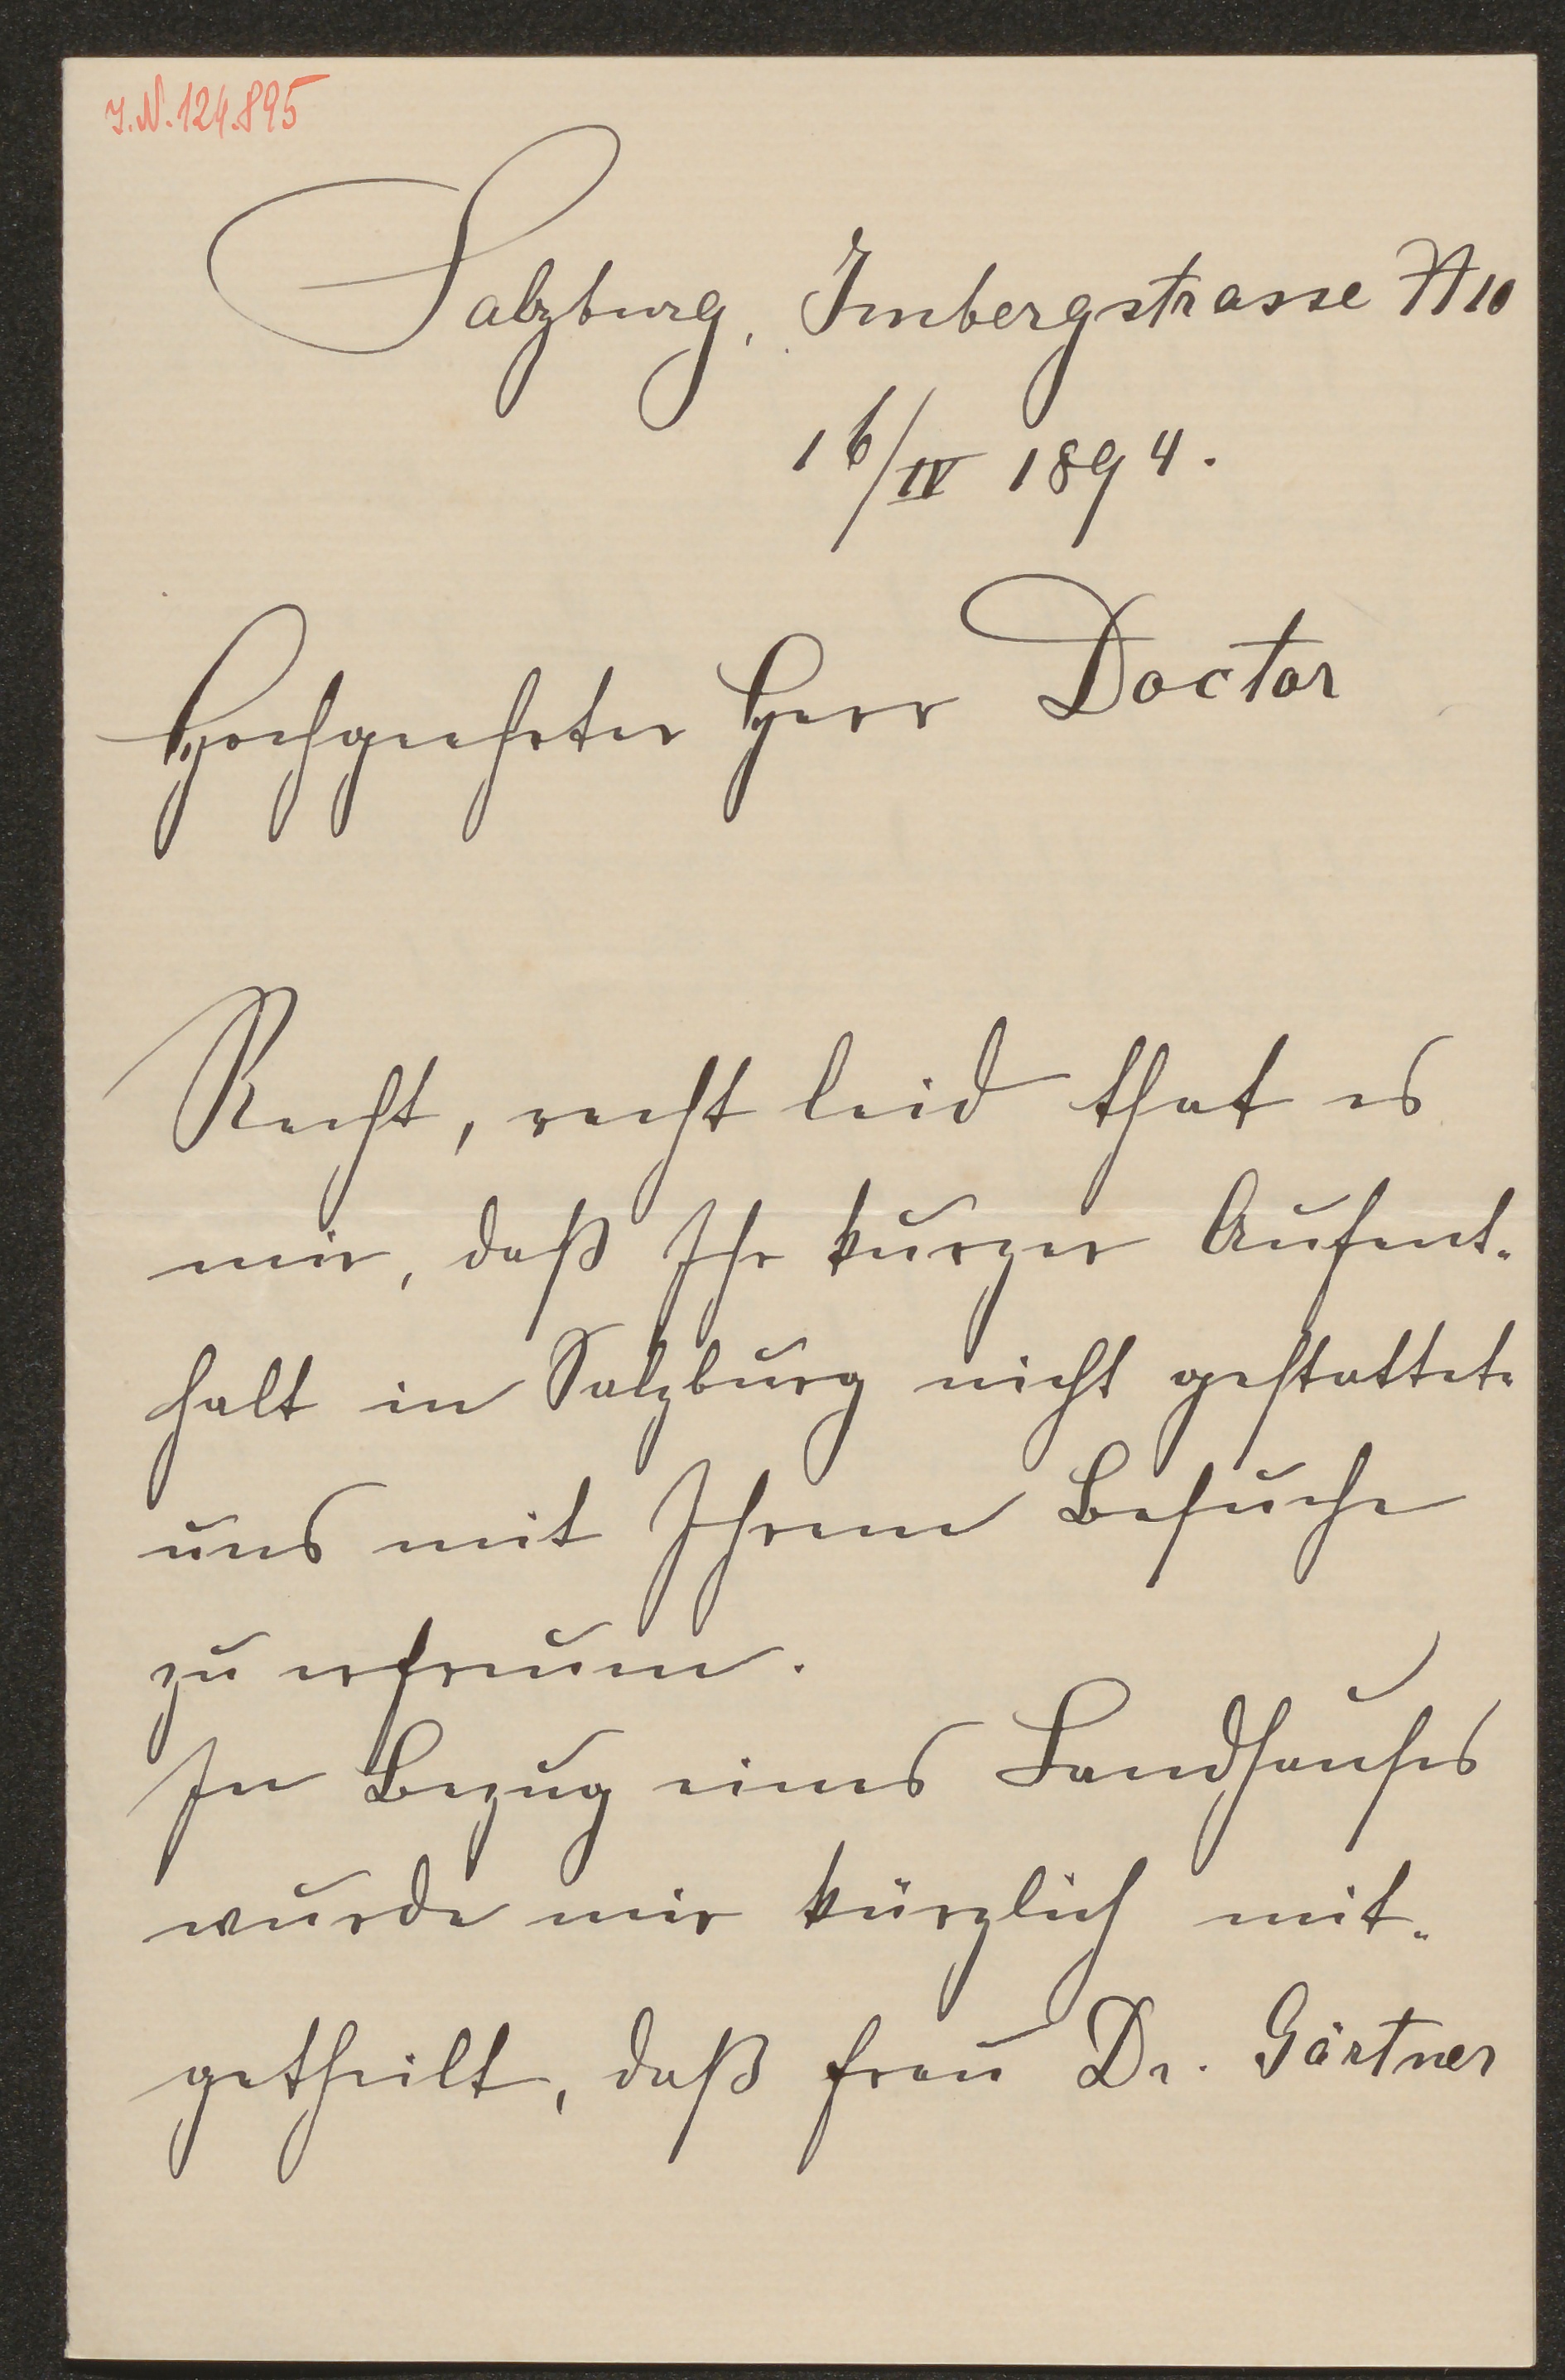 I.N. 124.895
Salzburg, Imbergstrasse N 10
16/IV 1894.
Hochgeehrter Herr Doctor
Recht, recht leid that es
mir, daß Ihr kurzer Aufent-
halt in Salzburg nicht gestattet
uns mit Ihrem Besuche
zu erfreuen.
In Bezug eines Landhauses
wurde mir kürzlich mit-
getheilt, daß Frau Dr. Gärtner